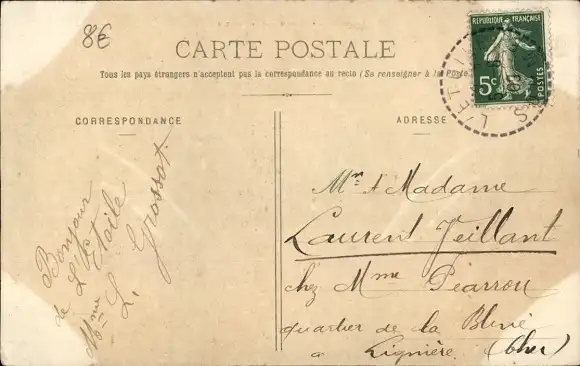 8€
CARTE POSTALE
Tous les pays étrangers n'acceptent pas la correspondance au recto (Se renseigner à la Poste.)
CORRESPONDANCE
ADRESSE
RÉPUBLIQUE FRANÇAISE
5c
POSTES
Bonjour
de L'Etoile
Mme L. Grossot.
Mr & Madame
Laurent Veillant
chez Mme Péarrou
quartier de la
a Lignière (Cher)